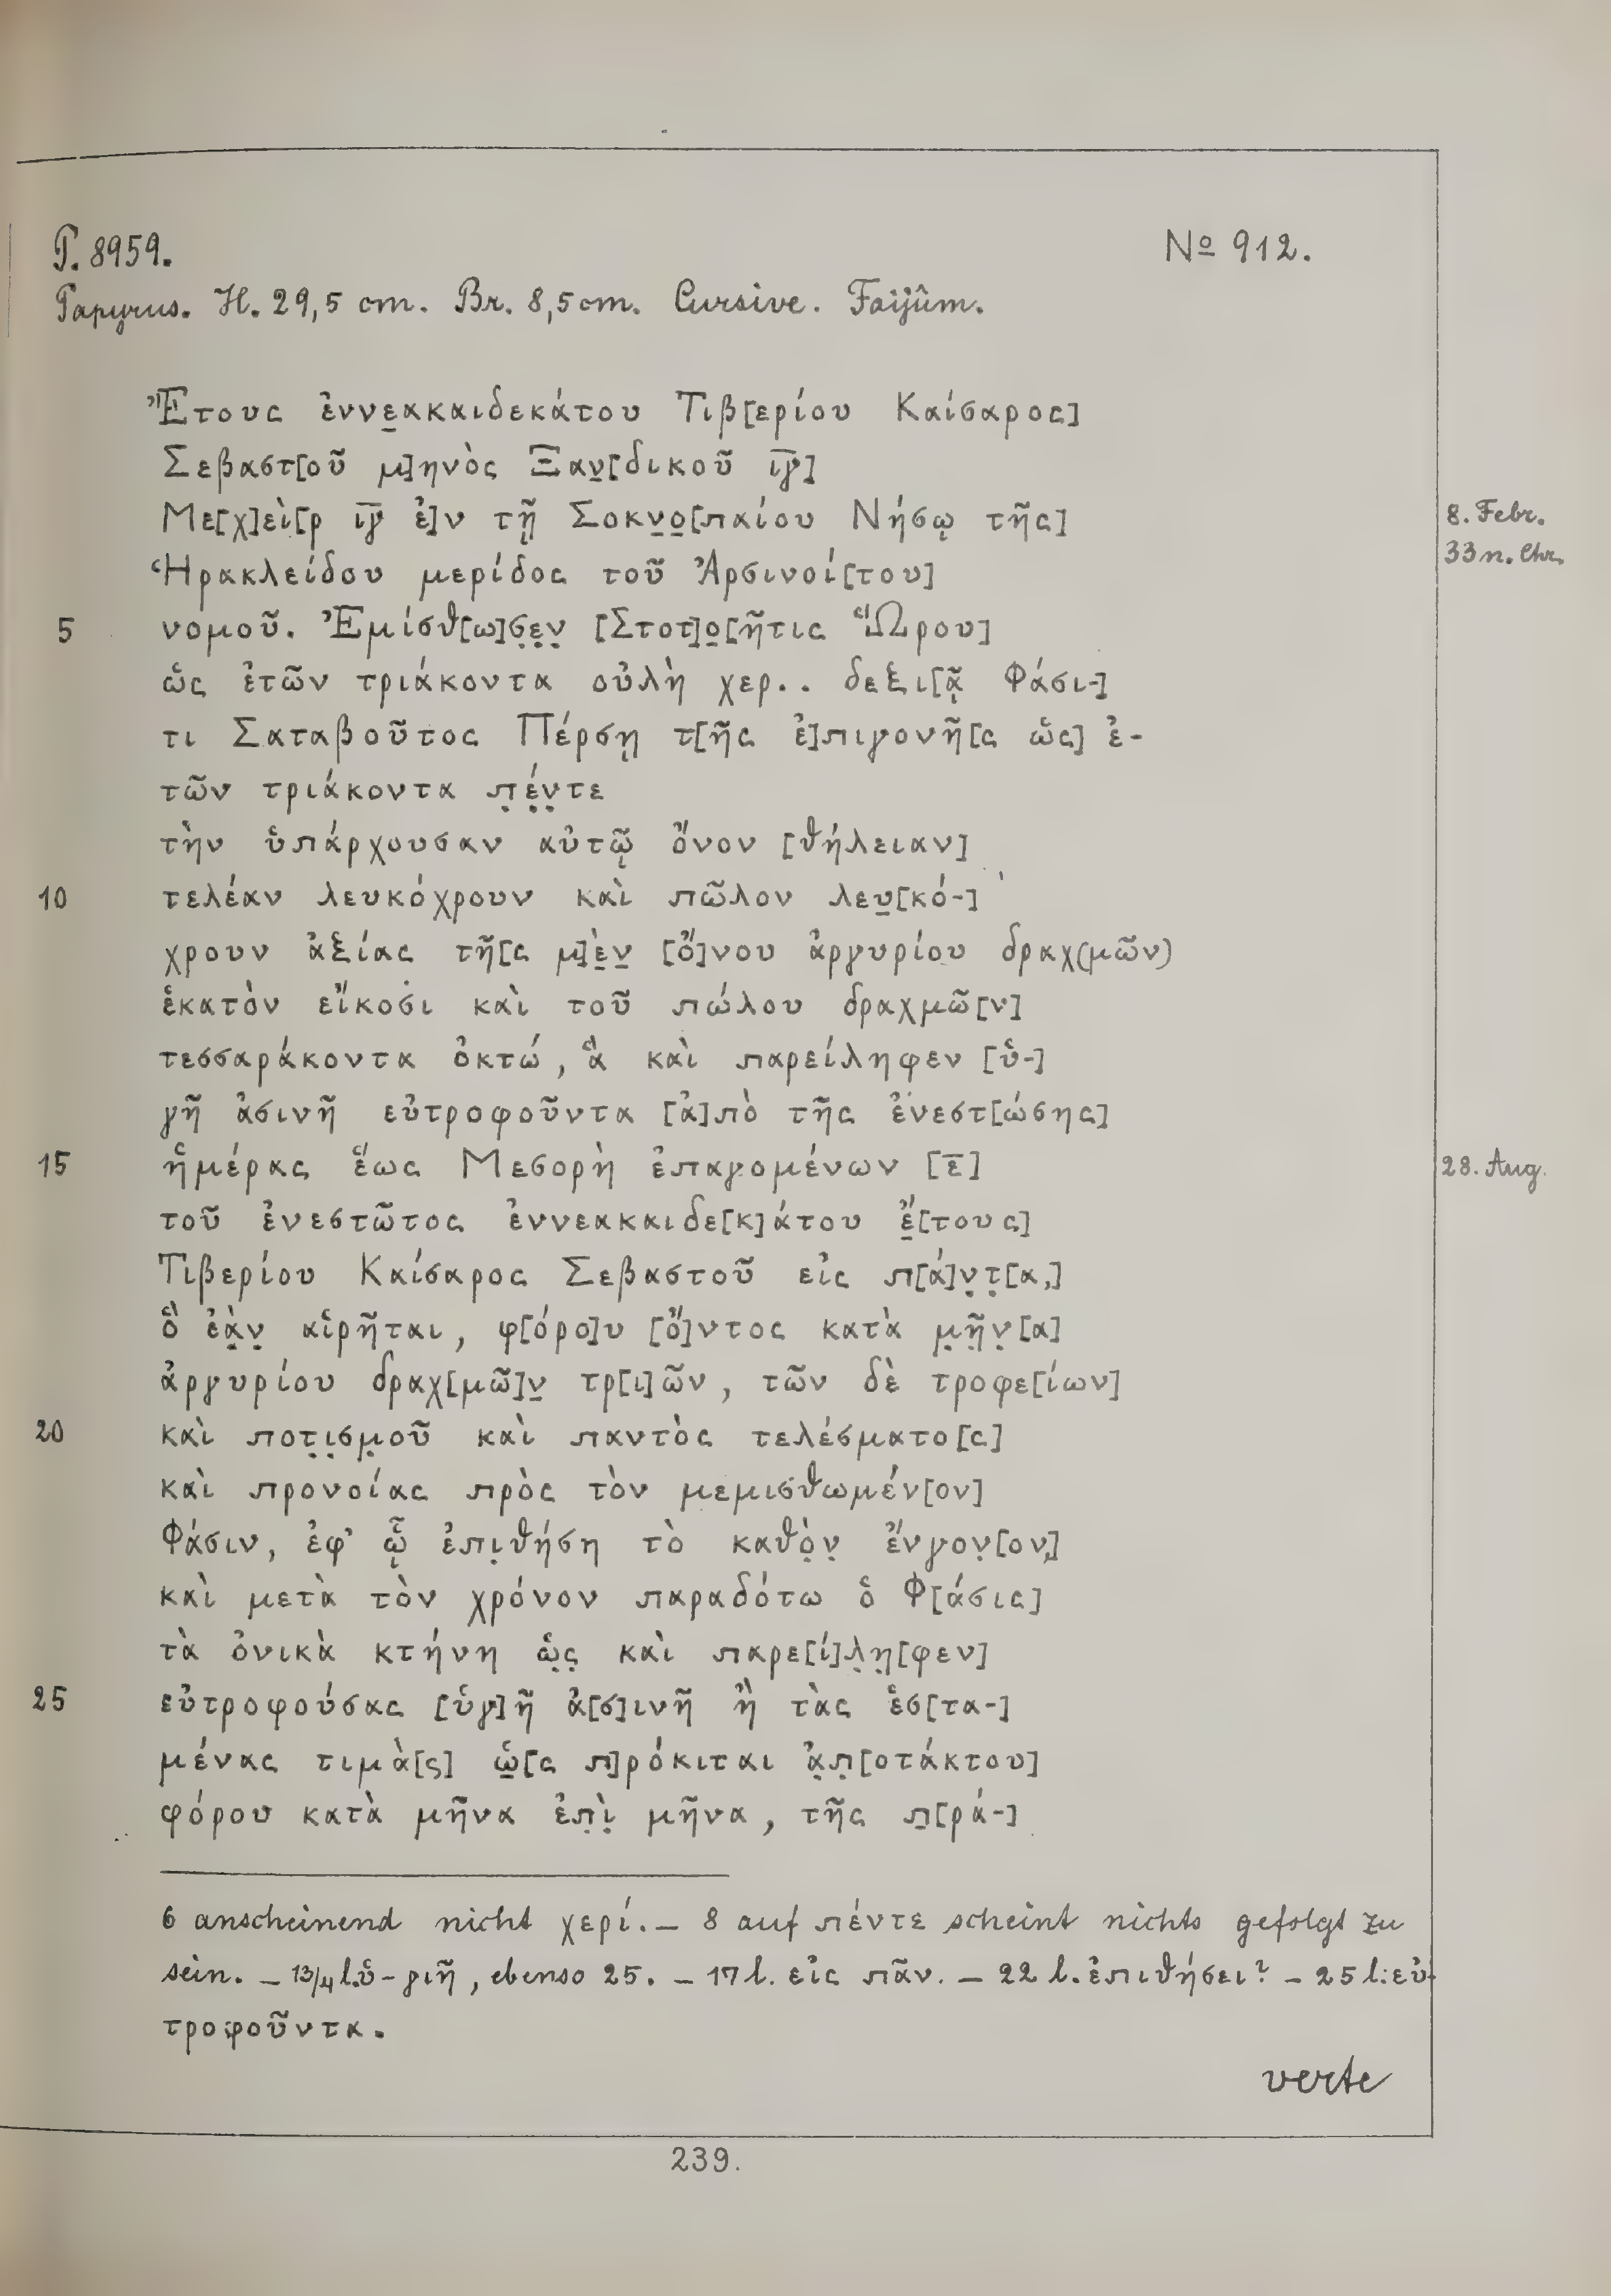 P. 8959. № 912.
Papyrus. H. 29,5 cm. Br. 8,5 cm. Cursive. Faijûm.
Ἔτους ἐννε̣ακαιδεκάτου Τιβ[ερίου Καίσαρος]
Σεβαστ[οῦ μ]ηνὸς Ξαν̣[δικοῦ ι̅γ̅]
Με[χ]εὶ[ρ ι̅γ̅ ἐ]ν τῇ Σοκν̣ο̣[παίου Νήσῳ τῆς]
8. Febr.
33 n. Chr.
Ἡρακλείδου μερίδος τοῦ Ἀρσινοί[του]
5 νομοῦ. Ἐμίσθ[ω]σ̣ε̣ν̣ [Στοτ]ο̣[ῆτις Ὥρου]
ὡς ἐτῶν τριάκοντα οὐλὴ χερ.. δεξι[ᾷ Φάσι-]
τι Σαταβοῦτος Πέρσῃ τ[ῆς ἐ]πιγονῆ[ς ὡς] ἐ-
τῶν τριάκοντα π̣έ̣ν̣τε
τὴν ὑπάρχουσαν αὐτῷ ὄνον [θήλειαν]
10 τελέαν λευκόχρουν καὶ πῶλον λευ̣[κό-]
χρουν ἀξίας τῆ[ς μ]ὲ̣ν̣ [ὄ]νου ἀργυρίου δραχ(μῶν)
ἑκατὸν εἴκοσι καὶ τοῦ πώλου δραχμῶ[ν]
τεσσαράκοντα ὀκτώ, ἃ καὶ παρείληφεν [ὑ-]
γῆ ἀσινῆ εὐτροφοῦντα [ἀ]πὸ τῆς ἐνεστ[ώσης]
15 ἡμέρας ἕως Μεσορὴ ἐπαγομένων [ε̅]
28. Aug.
τοῦ ἐνεστῶτος ἐννεακαιδε[κ]άτου ἔ̣[τους]
Τιβερίου Καίσαρος Σεβαστοῦ εἰς π[ά]ν̣τ̣[α,]
ὃ ἐὰ̣ν̣ αἱρῆται, φ[όρο]υ [ὄ]ντος κατὰ μ̣ῆ̣ν̣[α]
ἀργυρίου δραχ[μῶ]ν̣ τρ[ι]ῶν, τῶν δὲ τροφε[ίων]
20 καὶ ποτ̣ι̣σμ̣οῦ καὶ παντὸς τελέσματο[ς]
καὶ προνοίας πρὸς τὸν μεμισθωμέν[ον]
Φάσιν, ἐφʼ ᾧ ἐπι̣θήση τὸ καθὸ̣ν̣ ἔνγον̣[ον,]
καὶ μετὰ τὸν χρόνον παραδότω ὁ Φ[άσις]
τὰ ὀνικὰ κτήνη ὡ̣ς̣ καὶ παρε[ί]λ̣η̣[φεν]
25 εὐτροφούσας [ὑγ]ῆ ἀ[σ]ινῆ ἢ τὰς ἑσ[τα-]
μένας τιμὰ[ς] ὡ̣[ς π]ρόκιται ἀ̣π̣[οτάκτου]
φόρου κατὰ μῆνα ἐπ̣ὶ̣ μῆνα, τῆς π̣[ρά-]
6 anscheinend nicht χερί. — 8 auf πέντε scheint nichts gefolgt zu
sein. — 13/4 l. ὑ-γιῆ, ebenso 25. — 17 l. εἰς πᾶν. — 22 l. ἐπιθήσει? — 25 l: εὐ-
τροφοῦντα.
verte
239.